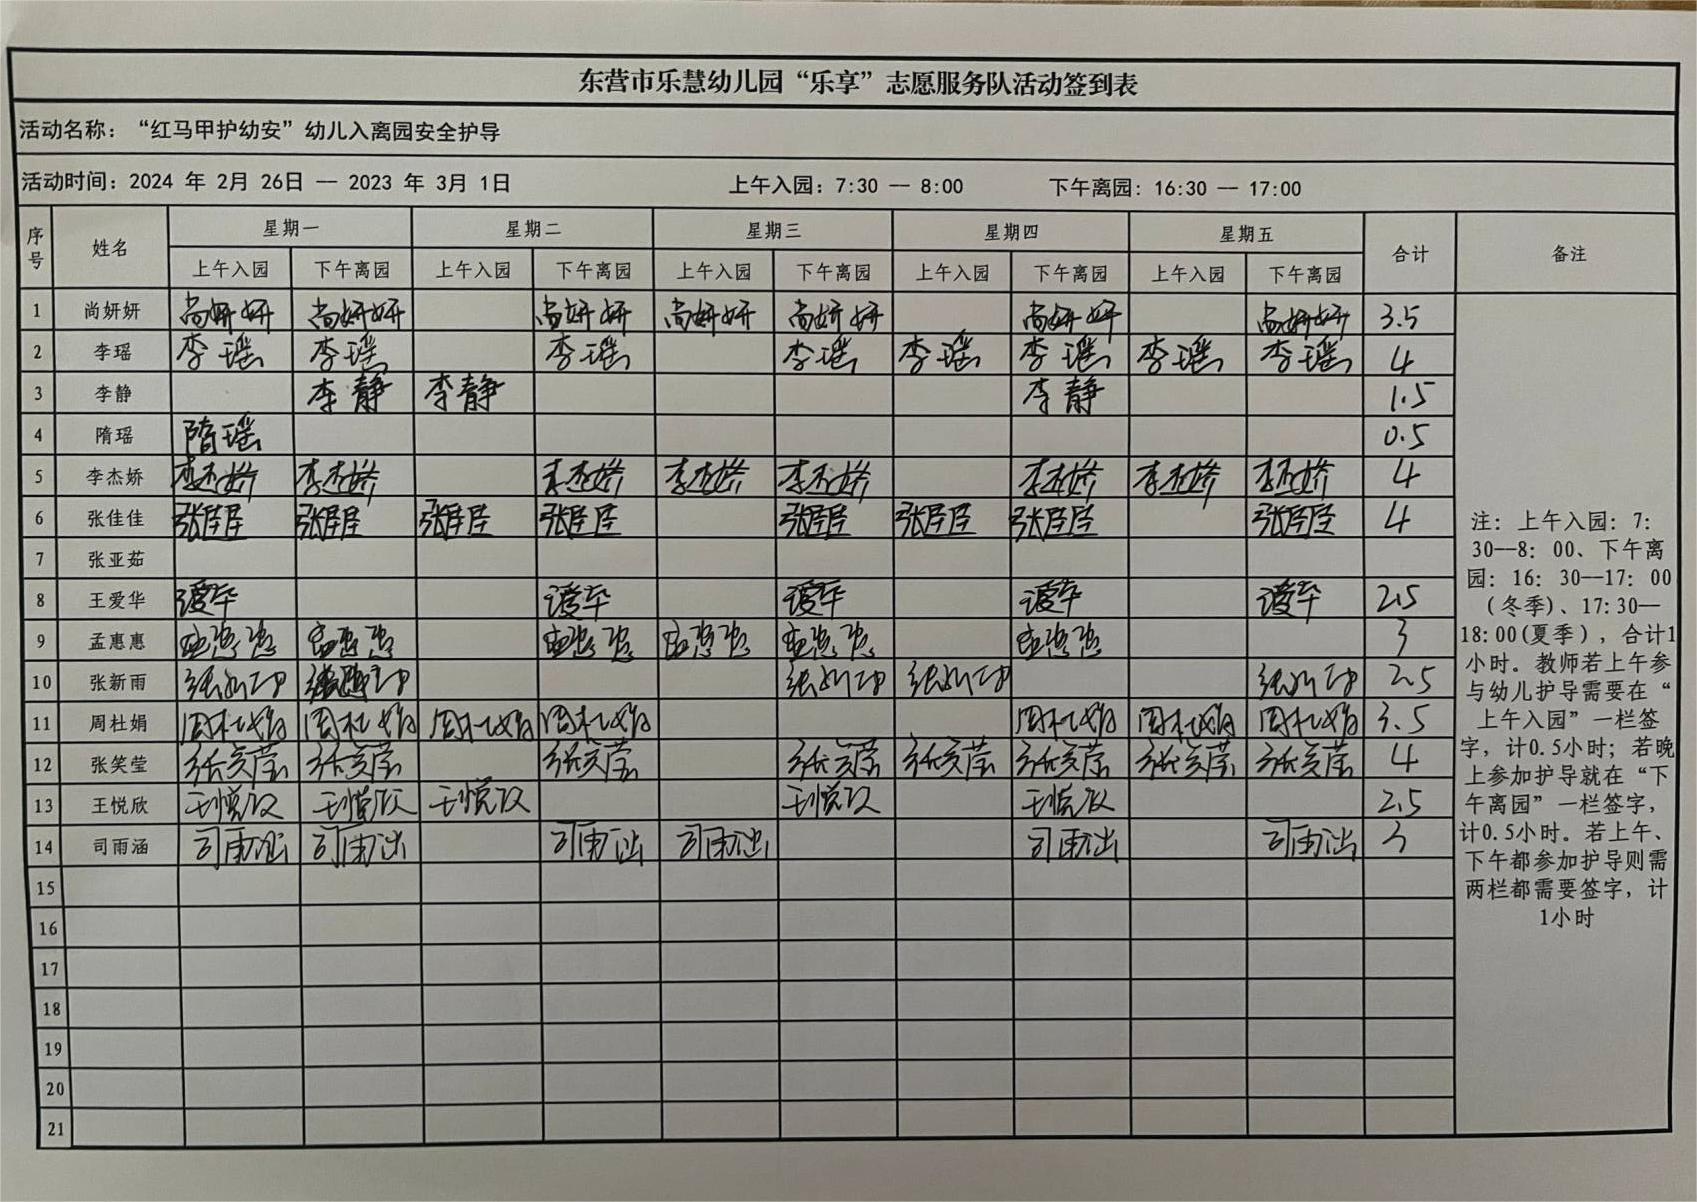 东营市乐慧幼儿园“乐享”志愿服务队活动签到表
活动名称：“红马甲护幼安”幼儿入离园安全护导
活动时间：2024 年 2月 26日 -- 2023 年 3月 1日 上午入园：7:30 -- 8:00 下午离园：16:30 -- 17:00
序号 姓名 星期一 星期二 星期三 星期四 星期五 合计 备注
上午入园 下午离园 上午入园 下午离园 上午入园 下午离园 上午入园 下午离园 上午入园 下午离园
1 尚妍妍 尚妍妍 尚妍妍 尚妍妍 尚妍妍 尚妍妍 尚妍妍 尚妍妍 3.5
2 李瑶 李瑶 李瑶 李瑶 李瑶 李瑶 李瑶 李瑶 李瑶 4
3 李静 李静 李静 李静 1.5
4 隋瑶 隋瑶 0.5
5 李杰娇 李杰娇 李杰娇 李杰娇 李杰娇 李杰娇 李杰娇 李杰娇 李杰娇 4
6 张佳佳 张佳佳 张佳佳 张佳佳 张佳佳 张佳佳 张佳佳 张佳佳 张佳佳 4
7 张亚茹
8 王爱华 王爱华 王爱华 王爱华 王爱华 王爱华 2.5
9 孟惠惠 孟惠惠 孟惠惠 孟惠惠 孟惠惠 孟惠惠 孟惠惠 3
10 张新雨 张新雨 张新雨 张新雨 张新雨 张新雨 2.5
11 周杜娟 周杜娟 周杜娟 周杜娟 周杜娟 周杜娟 周杜娟 周杜娟 3.5
12 张笑莹 张笑莹 张笑莹 张笑莹 张笑莹 张笑莹 张笑莹 张笑莹 张笑莹 4
13 王悦欣 王悦欣 王悦欣 王悦欣 王悦欣 王悦欣 2.5
14 司雨涵 司雨涵 司雨涵 司雨涵 司雨涵 司雨涵 司雨涵 3
15
16
17
18
19
20
21
注：上午入园：7：
30--8：00、下午离
园：16：30--17：00
（冬季）、17:30--
18:00(夏季），合计1
小时。教师若上午参
与幼儿护导需要在“
上午入园”一栏签
字，计0.5小时；若晚
上参加护导就在“下
午离园”一栏签字，
计0.5小时。若上午、
下午都参加护导则需
两栏都需要签字，计
1小时